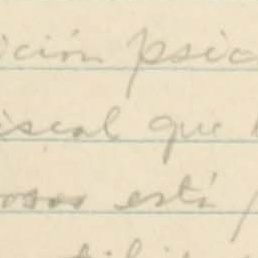 ición psic
iscal que
osas está